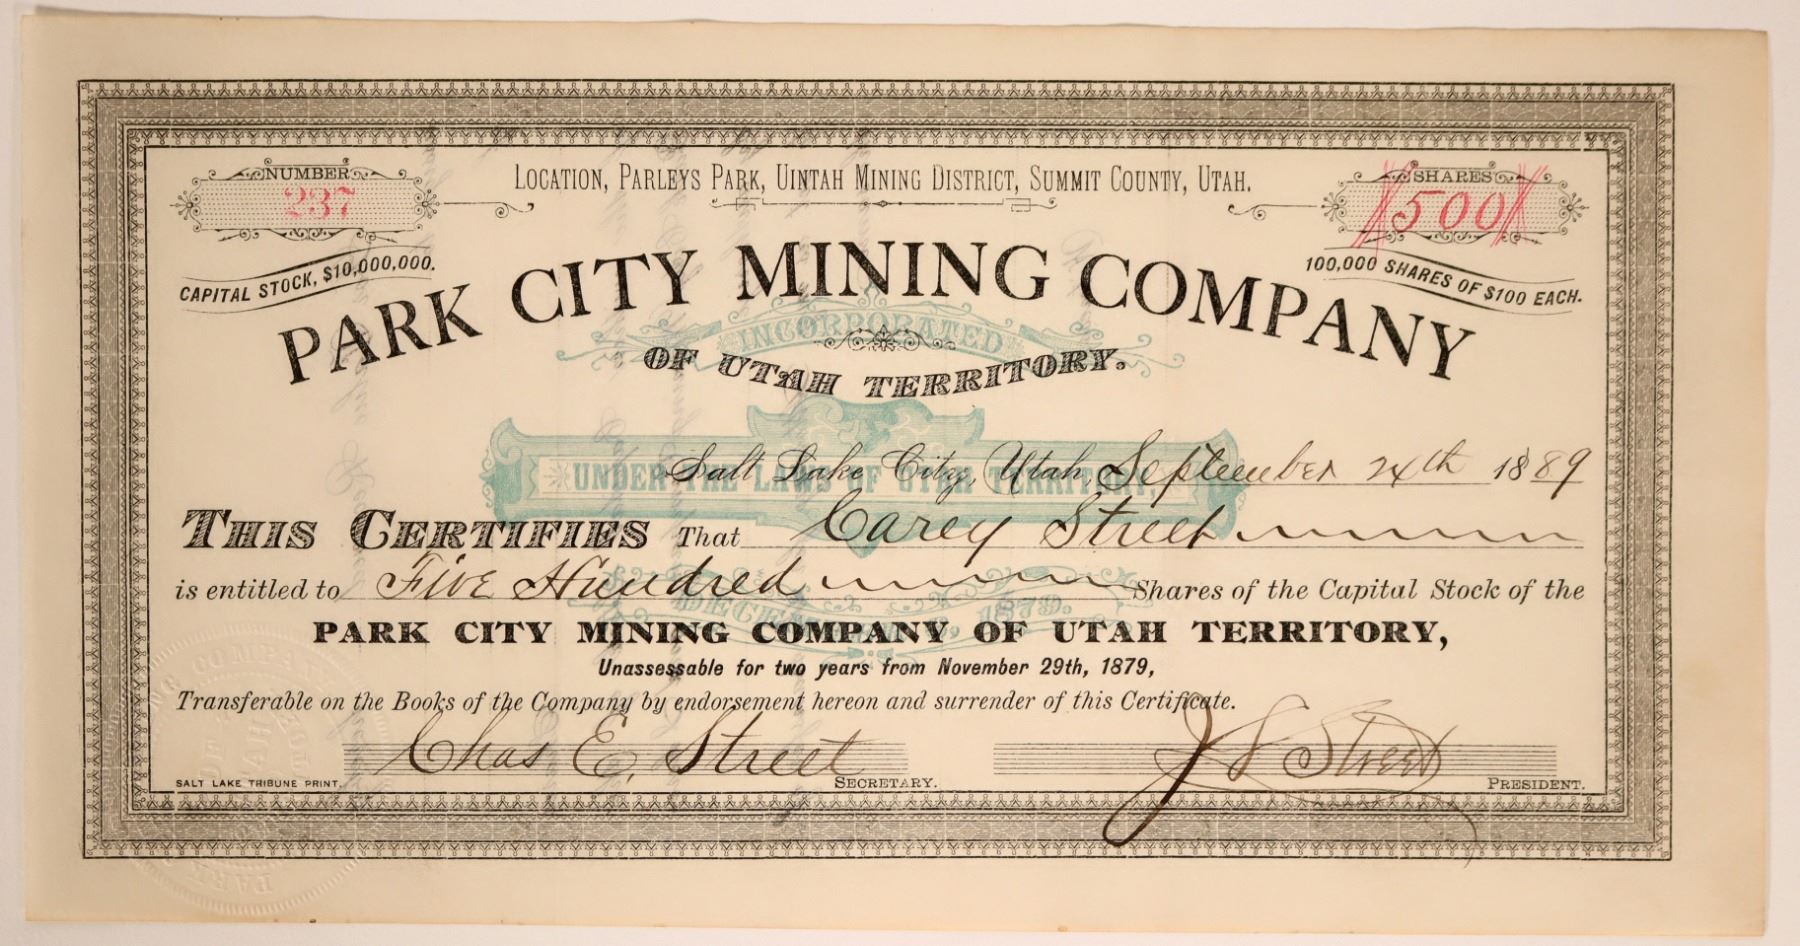 NUMBER
237
LOCATION, PARLEYS PARK, UINTAH MINING DISTRICT, SUMMIT COUNTY, UTAH.
SHARES
500
CAPITAL STOCK, $10,000,000.
100,000 SHARES OF $100 EACH.
PARK CITY MINING COMPANY
INCORPORATED
OF UTAH TERRITORY.
Salt Lake City, Utah, September 24th 1889
UNDER THE LAWS OF UTAH TERRITORY,
THIS CERTIFIES That Carey Street
is entitled to Five Hundred Shares of the Capital Stock of the
1879.
PARK CITY MINING COMPANY OF UTAH TERRITORY,
Unassessable for two years from November 29th, 1879,
Transferable on the Books of the Company by endorsement hereon and surrender of this Certificate.
Chas E. Street
J S Street
SALT LAKE TRIBUNE PRINT.
SECRETARY.
PRESIDENT.